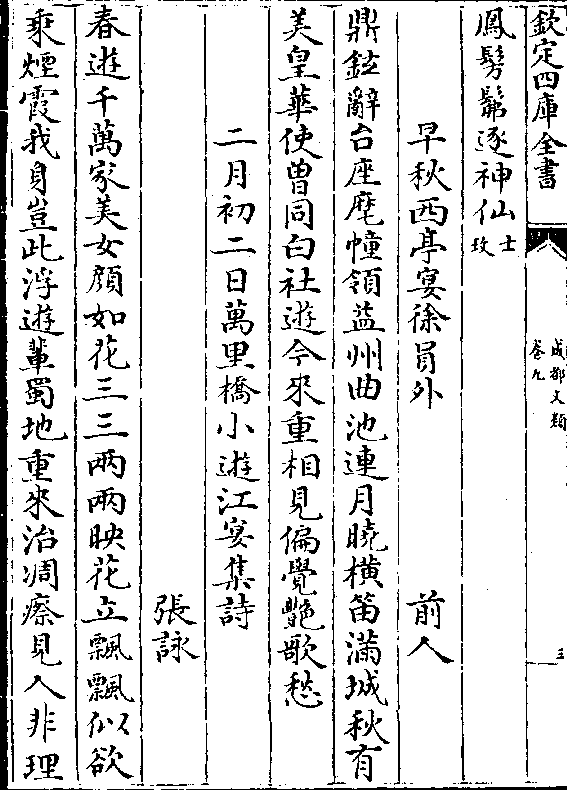 欽定四庫全書
成都文類
卷九
三
鳳髣髴逐神仙士玫
早秋西亭宴徐員外 前人
鼎鉉辭台座麾幢領益州曲池連月曉横笛滿城秋有
美皇華使曾同白社遊今來重相見偏覺艶歌愁
二月初二日萬里橋小遊江宴集詩
張詠
春遊千萬家美女顔如花三三兩兩映花立飄飄似欲
乘煙霞我身豈此浮遊輩蜀地重來治凋瘵見人非理